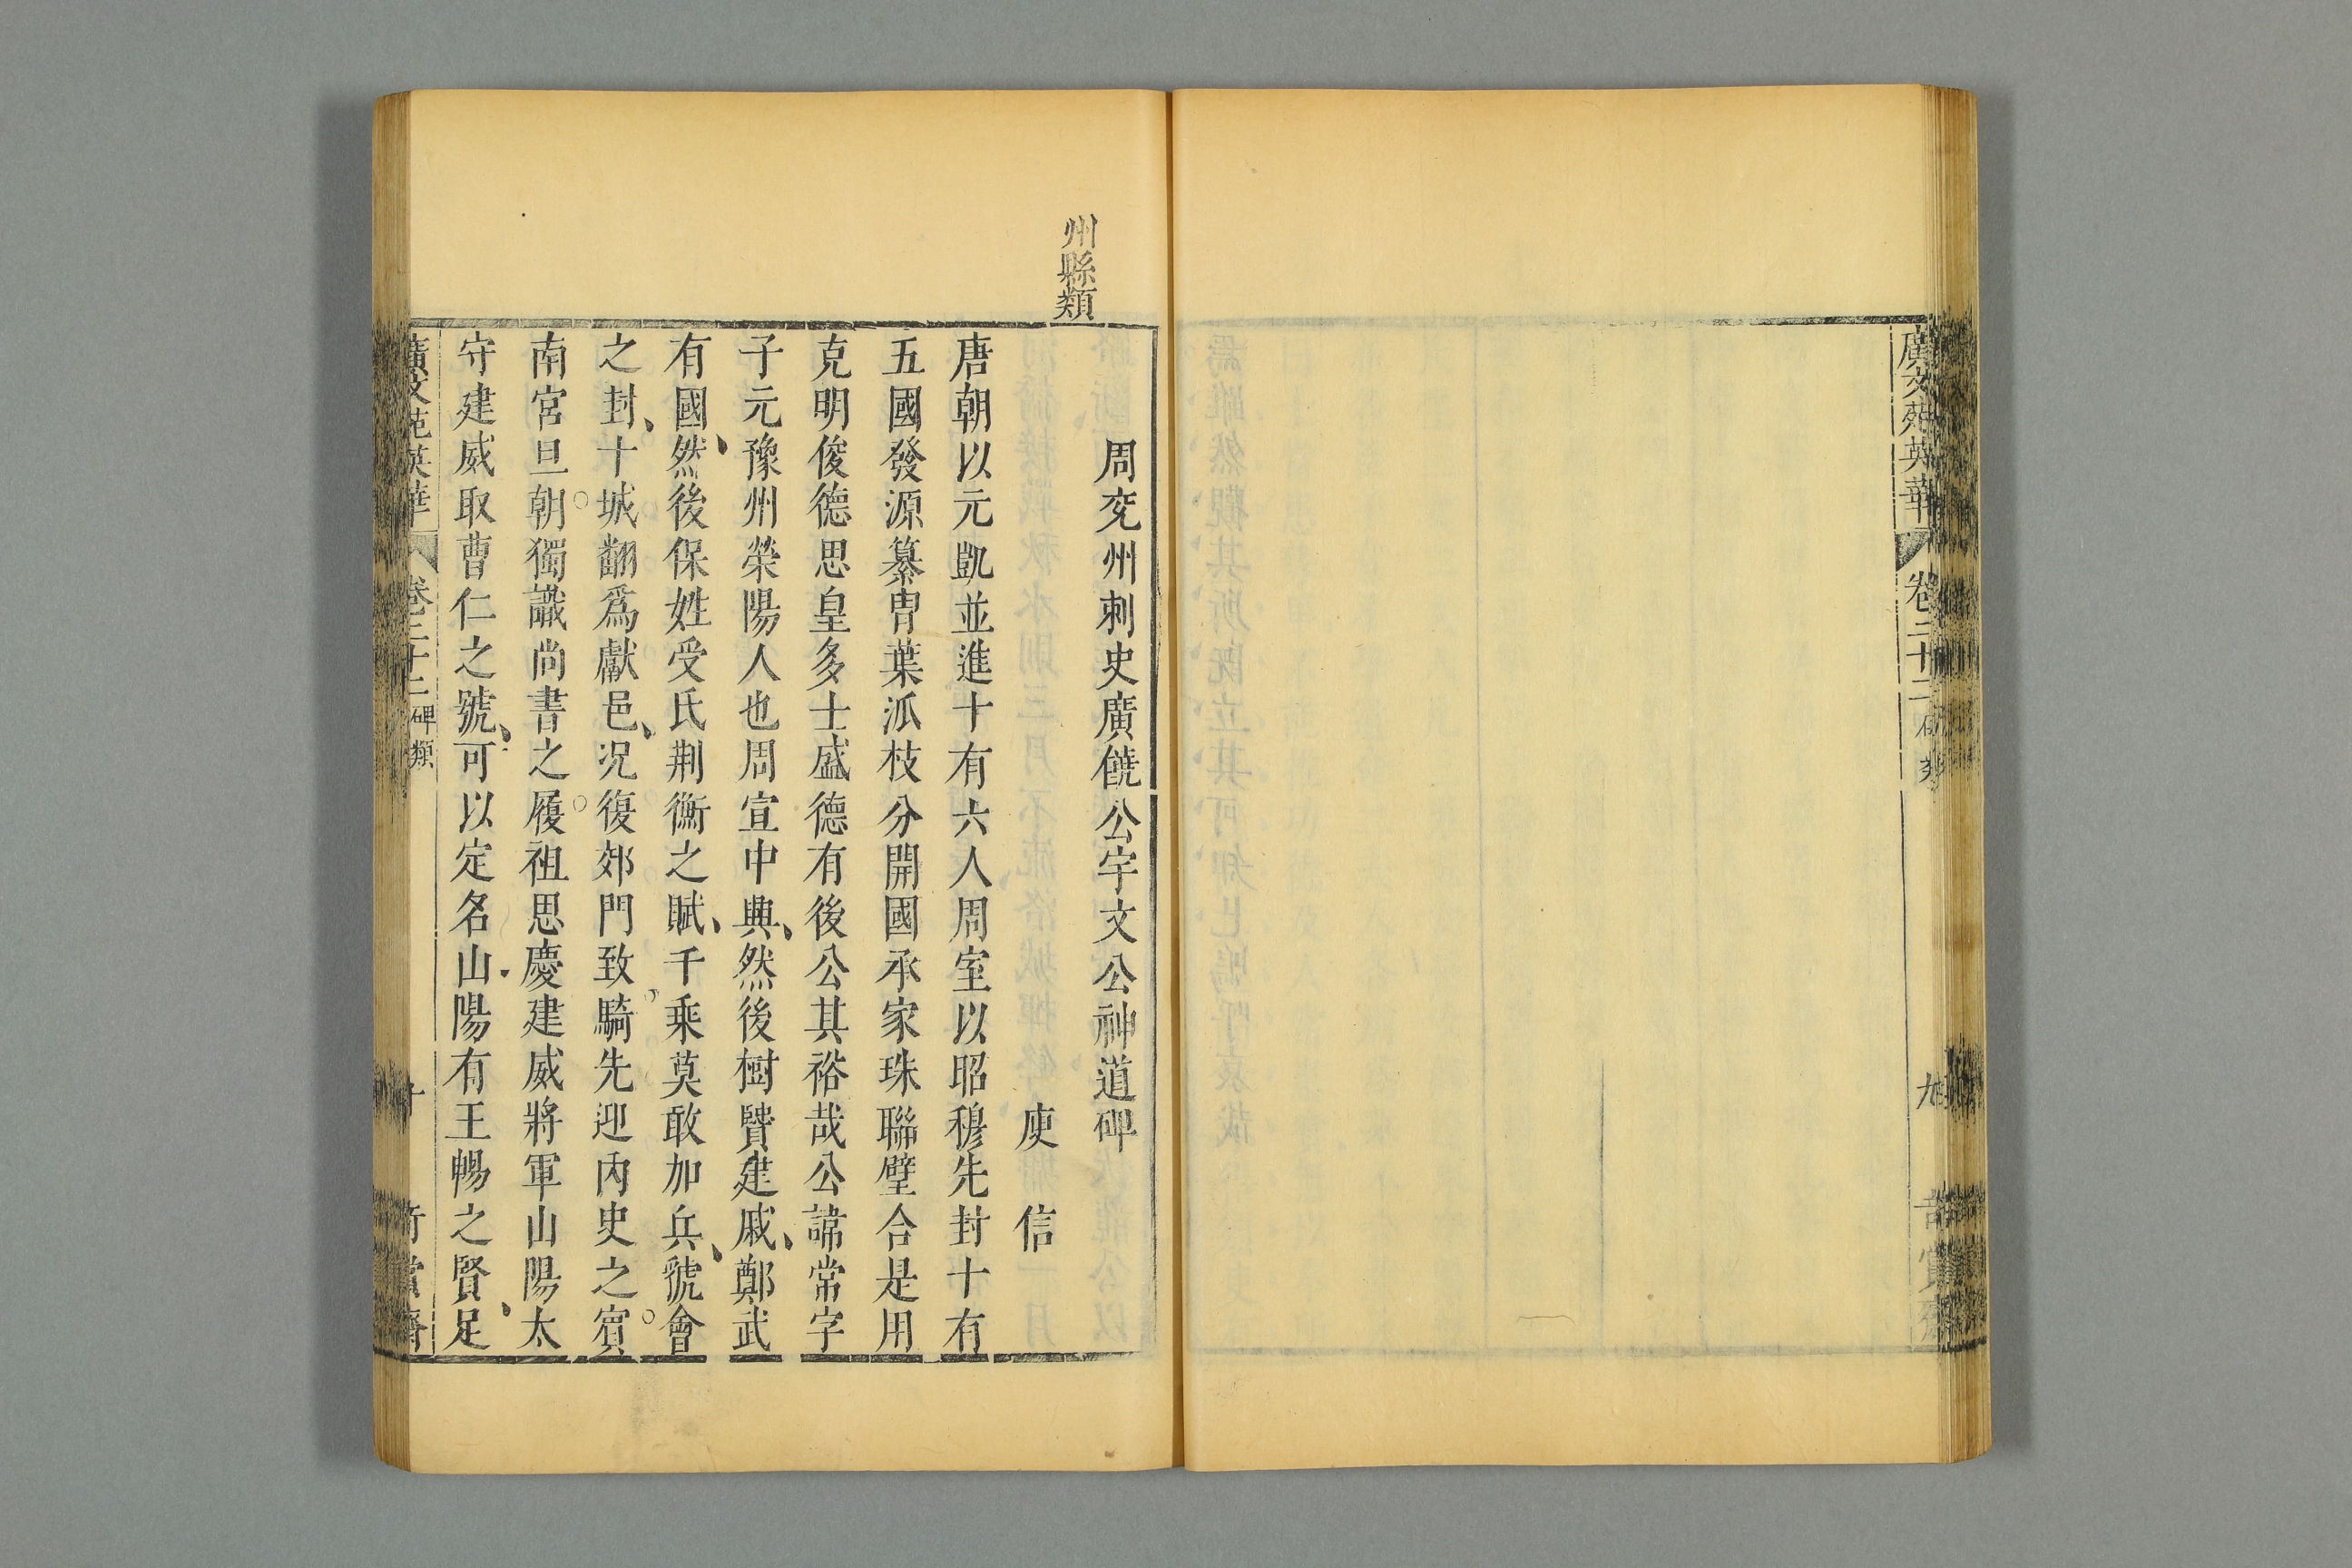 廣文苑英華
卷二十二
九
州縣類
周兖州刺史廣饒公宇文公神道碑
庾信
唐朝以元凱並進十有六人周室以昭穆先封十有
五國發源纂胄葉派枝分開國承家珠聯璧合是用
克明俊德思皇多士盛德有後公其裕哉公諱常字
子元豫州滎陽人也周宣中興然後樹賢建戚鄭武
有國然後保姓受氏荆衡之賦千乘莫敢加兵虢會
之封十城翻爲獻邑况復郊門致騎先迎內史之賓
南宮旦朝獨識尚書之履祖思慶建威將軍山陽太
守建威取曹仁之號可以定名山陽有王暢之賢足
廣文苑英華
卷二十二
碑類
十